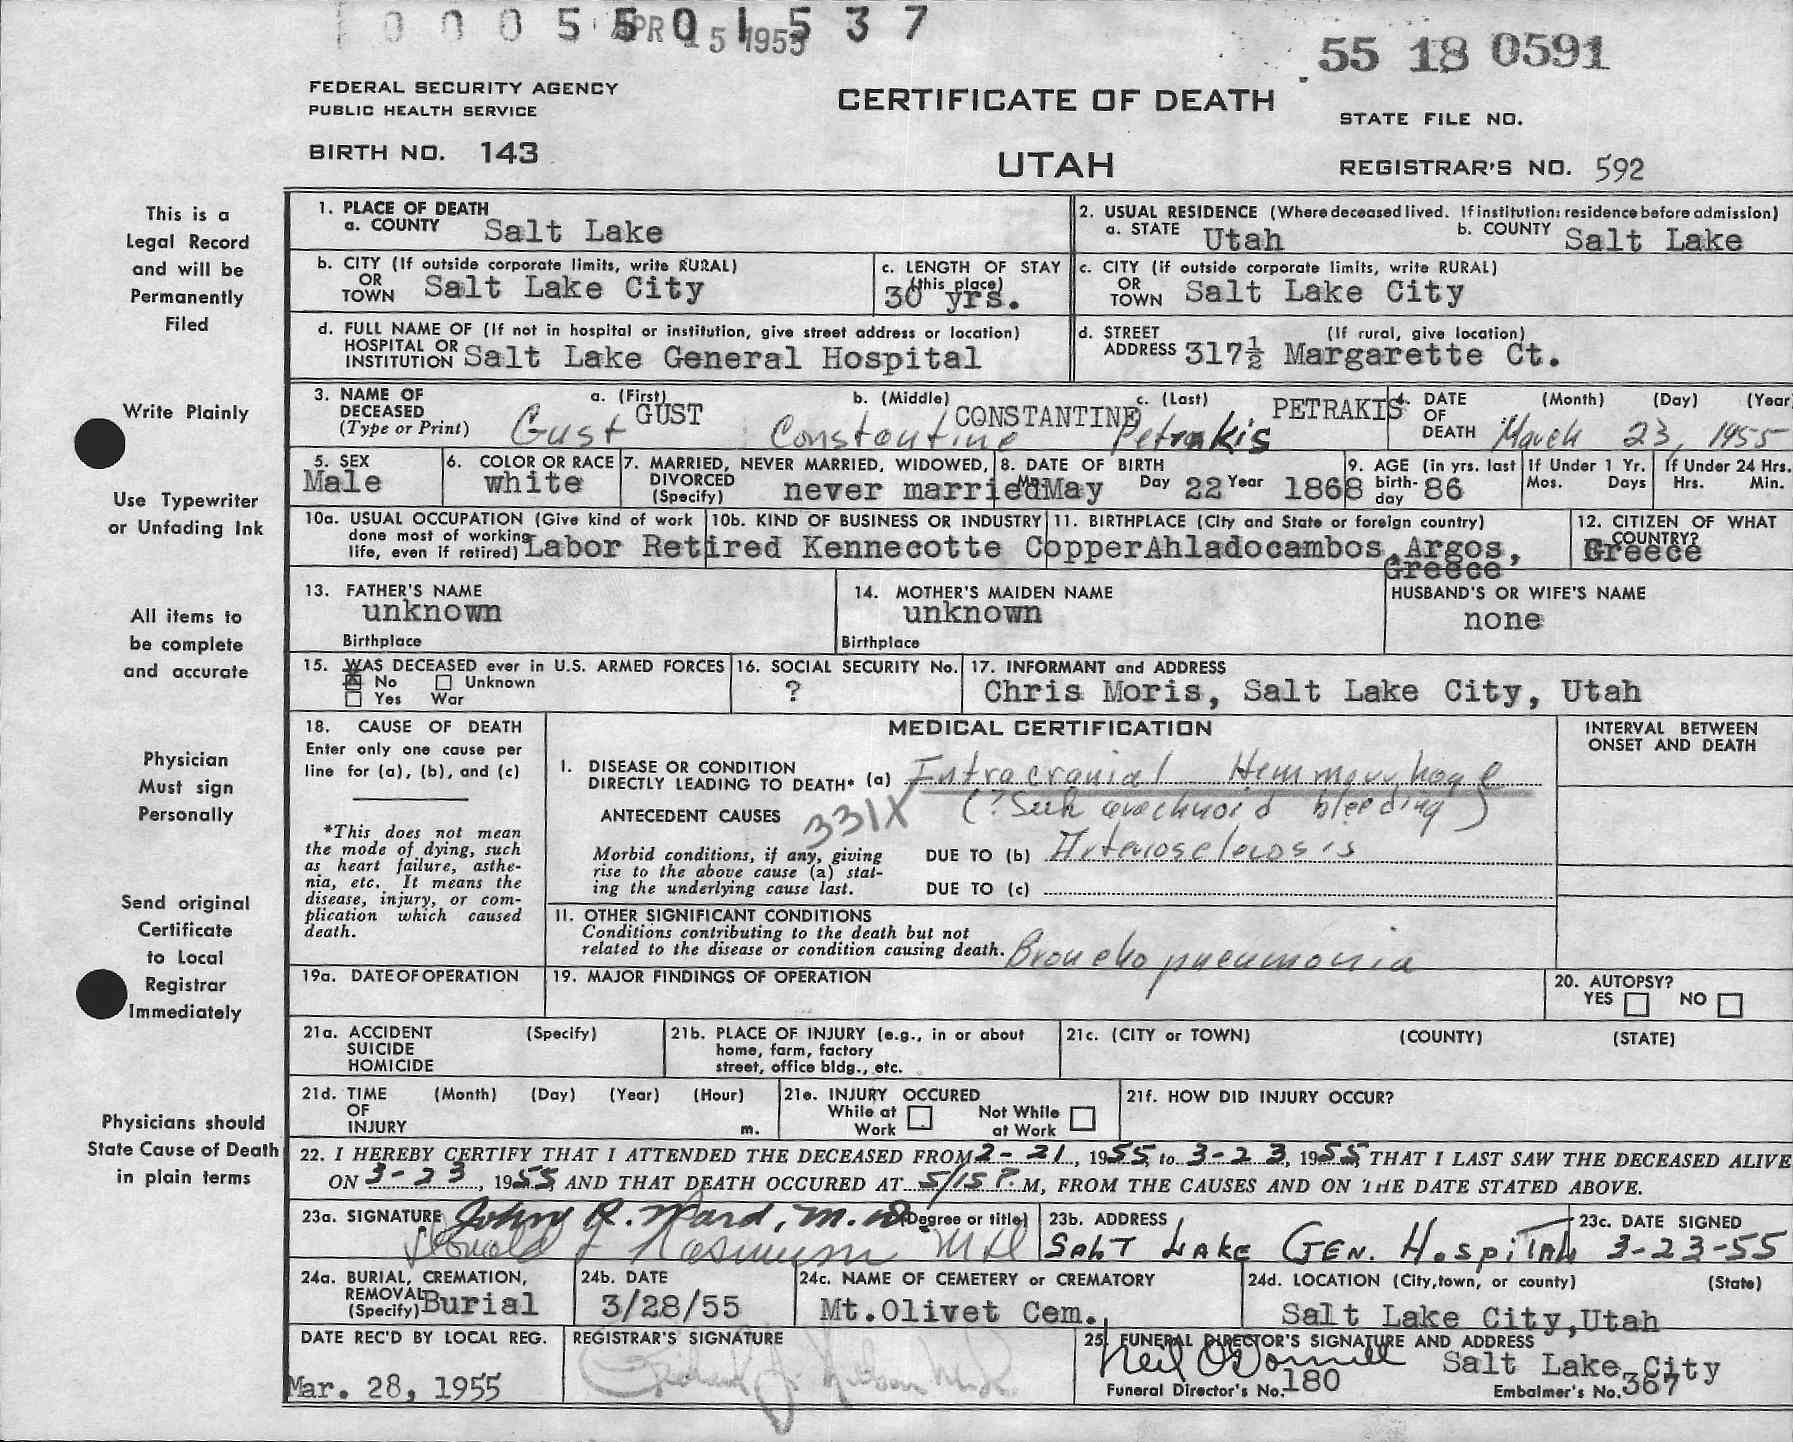 0 0 0 5 5 0 1 5 3 7
APR 15 1955
55 18 0591
FEDERAL SECURITY AGENCY
PUBLIC HEALTH SERVICE
CERTIFICATE OF DEATH
STATE FILE NO.
BIRTH NO. 143
UTAH
REGISTRAR'S NO. 592
This is a
Legal Record
and will be
Permanently
Filed
Write Plainly
Use Typewriter
or Unfading Ink
All items to
be complete
and accurate
Physician
Must sign
Personally
Send original
Certificate
to Local
Registrar
Immediately
Physicians should
State Cause of Death
in plain terms
1. PLACE OF DEATH
a. COUNTY Salt Lake
2. USUAL RESIDENCE (Where deceased lived. If institution: residence before admission)
a. STATE Utah b. COUNTY Salt Lake
b. CITY (If outside corporate limits, write RURAL)
OR
TOWN Salt Lake City
c. LENGTH OF STAY
(this place)
30 yrs.
c. CITY (if outside corporate limits, write RURAL)
OR
TOWN Salt Lake City
d. FULL NAME OF (If not in hospital or institution, give street address or location)
HOSPITAL OR
INSTITUTION Salt Lake General Hospital
d. STREET (If rural, give location)
ADDRESS 317½ Margarette Ct.
3. NAME OF
DECEASED
(Type or Print)
a. (First) b. (Middle) c. (Last)
GUST CONSTANTINE PETRAKIS
Gust Constantine Petrakis
4. DATE (Month) (Day) (Year
OF
DEATH March 23, 1955
5. SEX
Male
6. COLOR OR RACE
white
7. MARRIED, NEVER MARRIED, WIDOWED,
DIVORCED
(Specify) never married
8. DATE OF BIRTH
Mo. May Day 22 Year 1868
9. AGE (in yrs. last
birth-
day 86
If Under 1 Yr.
Mos. Days
If Under 24 Hrs.
Hrs. Min.
10a. USUAL OCCUPATION (Give kind of work
done most of working
life, even if retired) Labor Retired
10b. KIND OF BUSINESS OR INDUSTRY
Kennecotte Copper
11. BIRTHPLACE (City and State or foreign country)
Ahladocambos, Argos,
Greece
12. CITIZEN OF WHAT
COUNTRY?
Greece
13. FATHER'S NAME
unknown
Birthplace
14. MOTHER'S MAIDEN NAME
unknown
Birthplace
HUSBAND'S OR WIFE'S NAME
none
15. WAS DECEASED ever in U.S. ARMED FORCES
No Unknown
Yes War
16. SOCIAL SECURITY No.
?
17. INFORMANT and ADDRESS
Chris Moris, Salt Lake City, Utah
18. CAUSE OF DEATH
Enter only one cause per
line for (a), (b), and (c)
*This does not mean
the mode of dying, such
as heart failure, asthe-
nia, etc. It means the
disease, injury, or com-
plication which caused
death.
MEDICAL CERTIFICATION
INTERVAL BETWEEN
ONSET AND DEATH
I. DISEASE OR CONDITION
DIRECTLY LEADING TO DEATH* (a) Intracranial Hemmorrhage
(? Sub arachnoid bleeding)
ANTECEDENT CAUSES 331X
Morbid conditions, if any, giving
rise to the above cause (a) stat-
ing the underlying cause last.
DUE TO (b) Arteriosclerosis
DUE TO (c)
II. OTHER SIGNIFICANT CONDITIONS
Conditions contributing to the death but not
related to the disease or condition causing death. Bronchopneumonia
19a. DATE OF OPERATION
19. MAJOR FINDINGS OF OPERATION
20. AUTOPSY?
YES NO
21a. ACCIDENT (Specify)
SUICIDE
HOMICIDE
21b. PLACE OF INJURY (e.g., in or about
home, farm, factory
street, office bldg., etc.
21c. (CITY or TOWN) (COUNTY) (STATE)
21d. TIME (Month) (Day) (Year) (Hour)
OF
INJURY m.
21e. INJURY OCCURED
While at Work Not While at Work
21f. HOW DID INJURY OCCUR?
22. I HEREBY CERTIFY THAT I ATTENDED THE DECEASED FROM 2-21, 1955, to 3-23, 1955, THAT I LAST SAW THE DECEASED ALIVE
ON 3-23, 1955, AND THAT DEATH OCCURED AT 5/15 P. M, FROM THE CAUSES AND ON THE DATE STATED ABOVE.
23a. SIGNATURE John R. Ward, M.D. (Degree or title)
Donald MD
23b. ADDRESS
SALT LAKE GEN. HOSPITAL
23c. DATE SIGNED
3-23-55
24a. BURIAL, CREMATION,
REMOVAL
(Specify) Burial
24b. DATE
3/28/55
24c. NAME OF CEMETERY or CREMATORY
Mt.Olivet Cem.,
24d. LOCATION (City, town, or county) (State)
Salt Lake City,Utah
DATE REC'D BY LOCAL REG.
Mar. 28, 1955
REGISTRAR'S SIGNATURE
25. FUNERAL DIRECTOR'S SIGNATURE AND ADDRESS
Neil O'Donnell Salt Lake City
Funeral Director's No. 180 Embalmer's No. 367